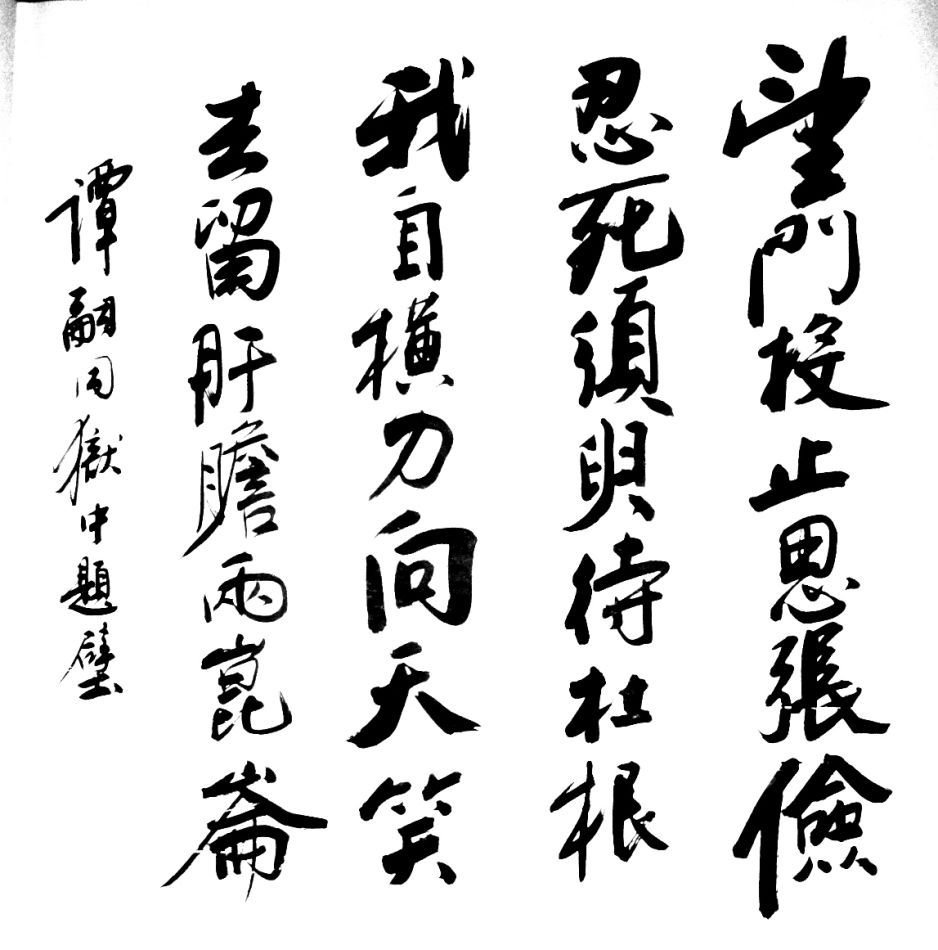 望門投止思張儉
忍死須臾待杜根
我自橫刀向天笑
去留肝膽兩崑崙
譚嗣同獄中題壁